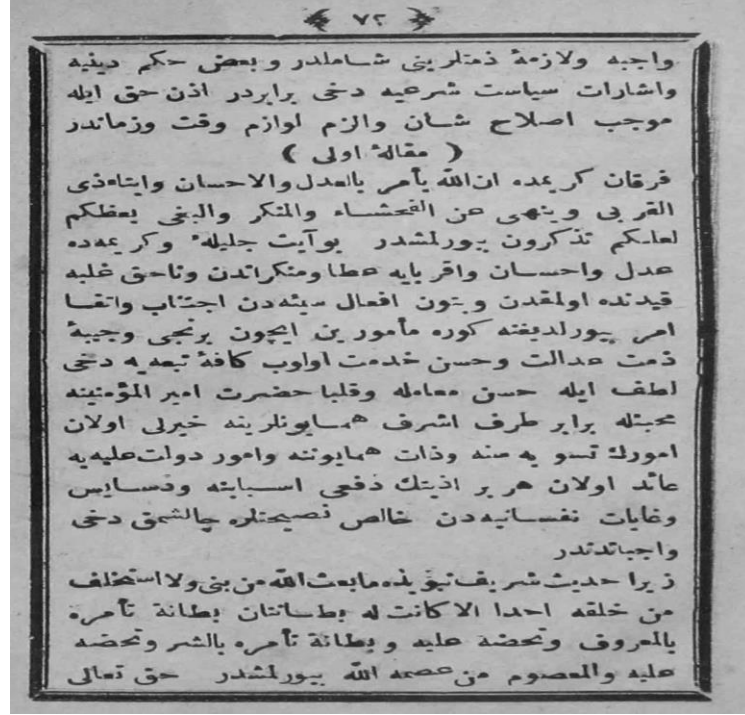 ﴿ ٧٢ ﴾
واجبه ولازمهٔ ذمتلرینی شاملدر وبعض حکم دینیه
واشارات سیاست شرعیه دخی برابردر اذن حق ایله
موجب اصلاح شان والزم لوازم وقت وزماندر
( مقالهٔ اولی )
فرقان کریمده ان الله یأمر بالعدل والاحسان وایتاءذی
القربی وینهی عن الفحشاء والمنکر والبغی یعظکم
لعلکم تذکرون بیورلمشدر بوآیت جلیلهٔ وکریمه‌ده
عدل واحسان واقربایه عطا ومنکراتدن وناحق غلبه
قیدنده اولمقدن وبتون افعال سیئه‌دن اجتناب واتقا
امر بیورلدیغنه کوره مأمورین ایچون برنجی وجیبهٔ
ذمت عدالت وحسن خدمت اولوب کافهٔ تبعه‌یه دخی
لطف ایله حسن معامله وقلبا حضرت امیر المؤمنینه
محبتله برابر طرف اشرف همایونلرینه خیرلی اولان
امورك تسویه‌سنه وذات همایوننه وامور دولت علیه‌یه
عائد اولان هر بر اذیتك دفعی اسبابنه ودسایس
وغایات نفسانیه‌دن خالص نصیحتلره چالشمق دخی
واجباتدندر
زیرا حدیث شریف نبویده مابعث الله من نبی ولا استخلف
من خلقه احدا الا کانت له بطانتان بطانة تأمره
بالمعروف وتحضه علیه وبطانة تأمره بالشر وتحضه
علیه والمعصوم من عصمه الله بیورلمشدر حق تعالی